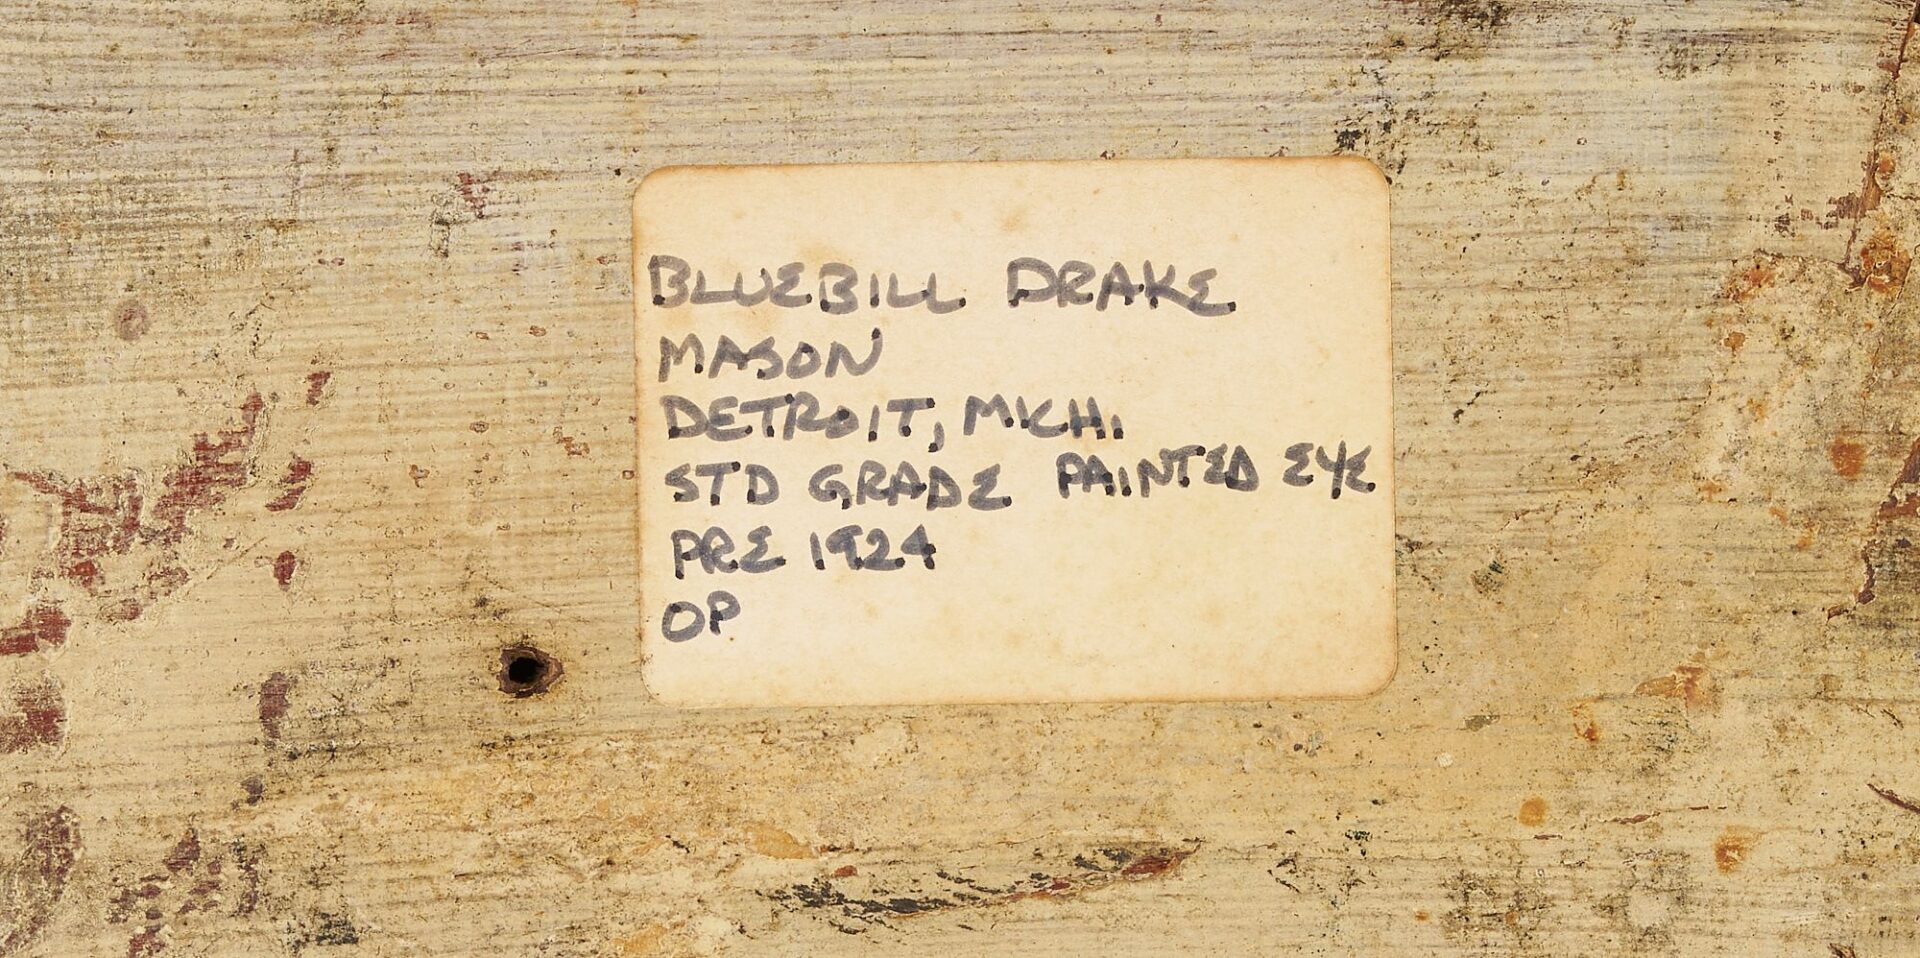 BLUEBILL DRAKE
MASON
DETROIT, MICH.
STD GRADE PAINTED EYE
PRE 1924
OP